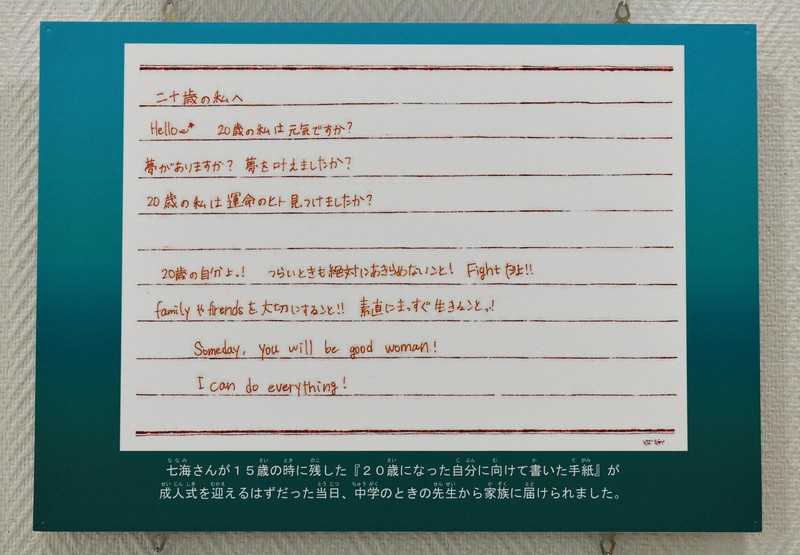 二十歳の私へ
Hello 20歳の私は元気ですか?
夢がありますか? 夢を叶えましたか?
20歳の私は運命のヒト見つけましたか?
20歳の自分よ、! つらいときも絶対にあきらめないこと! Fightだよ!!
familyやfirendsを大切にすること!! 素直にまっすぐ生きることっ!
Someday, you will be good woman!
I can do everything!
七海さんが15歳の時に残した『20歳になった自分に向けて書いた手紙』が
成人式を迎えるはずだった当日、中学のときの先生から家族に届けられました。